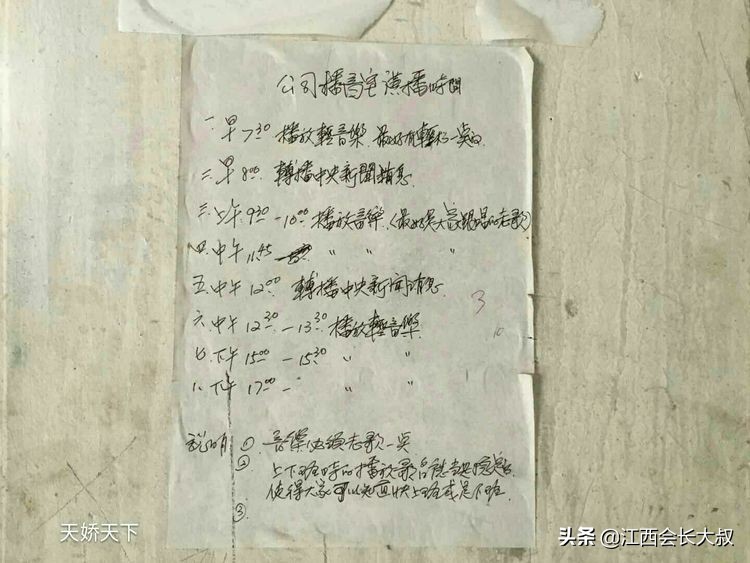 公司播音室演播時間
一 早 7:30 播放輕音樂. 最好有輕松一奌的
二. 早 8:00. 轉播中央新聞消息
三. 上午 9:30 - 10:00 播放音樂 (最好是大家跟唱的老歌)
四. 中午 11:45 〃 〃 〃
五. 中午 12:00 轉播中央新闻消息
六. 中午 12:30 - 13:30 播放輕音樂.
七. 下午 15:00 - 15:30 〃 〃
八. 下午 17:00 - 〃 〃
3
10
説明 ① 音樂必須老歌一奌
② 上下班時的播放歌
使得大家可以知道快上班或是下班.
③.
天娇天下
头条 @江西会长大叔